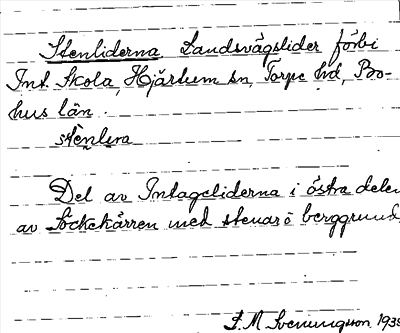 Stenliderna Landsvägslider förbi
Int. Skola, Hjärtum sn, Torpe hd, Bo-
hus län.
stenlera
Del av Intageliderna i östra delen
av Sockekärren med stenar i berggrund
S. M Sveningsson, 1939